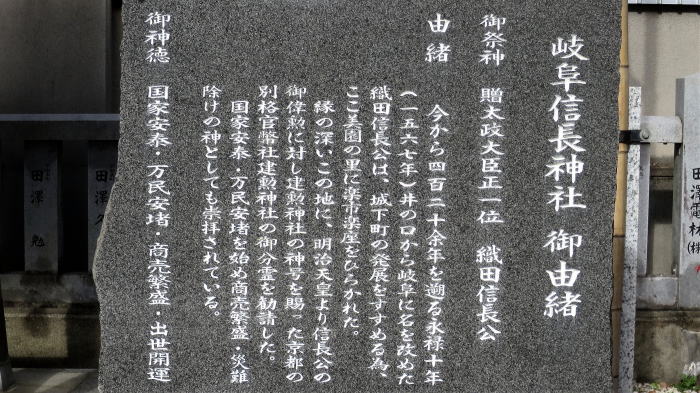 岐阜信長神社 御由緒
御祭神 贈太政大臣正一位 織田信長公
由緒 今から四百二十余年を遡る永禄十年
(一五六七年)井の口から岐阜に名を改めた
織田信長公は、城下町の発展をすすめる為、
ここ美園の里に楽市楽座をひらかれた。
縁の深いこの地に、明治天皇より信長公の
御偉勲に対し建勲神社の神号を賜った京都の
別格官幣社建勲神社の御分霊を勧請した。
国家安泰・万民安堵を始め商売繁盛・災難
除けの神としても崇拝されている。
御神徳 国家安泰・万民安堵・商売繁盛・出世開運
田澤雷林
(株)
田澤
田澤 勉